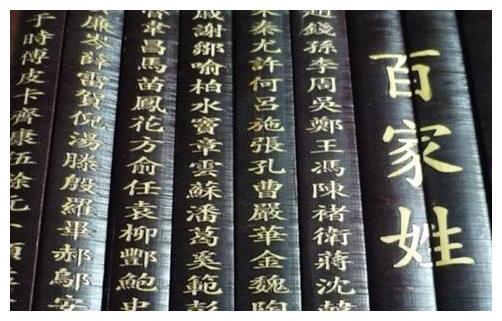 百家姓
趙錢孫李周吳鄭王馮陳褚衛蔣沈韓
朱秦尤許何呂施張孔曹嚴華金魏陶
戚謝鄒喻柏水竇章雲蘇潘葛奚範彭
韋昌馬苗鳳花方俞任袁柳酆鮑史
廉岑薛雷賀倪湯滕殷羅畢郝鄔安
于時傅皮卡齊康伍餘元